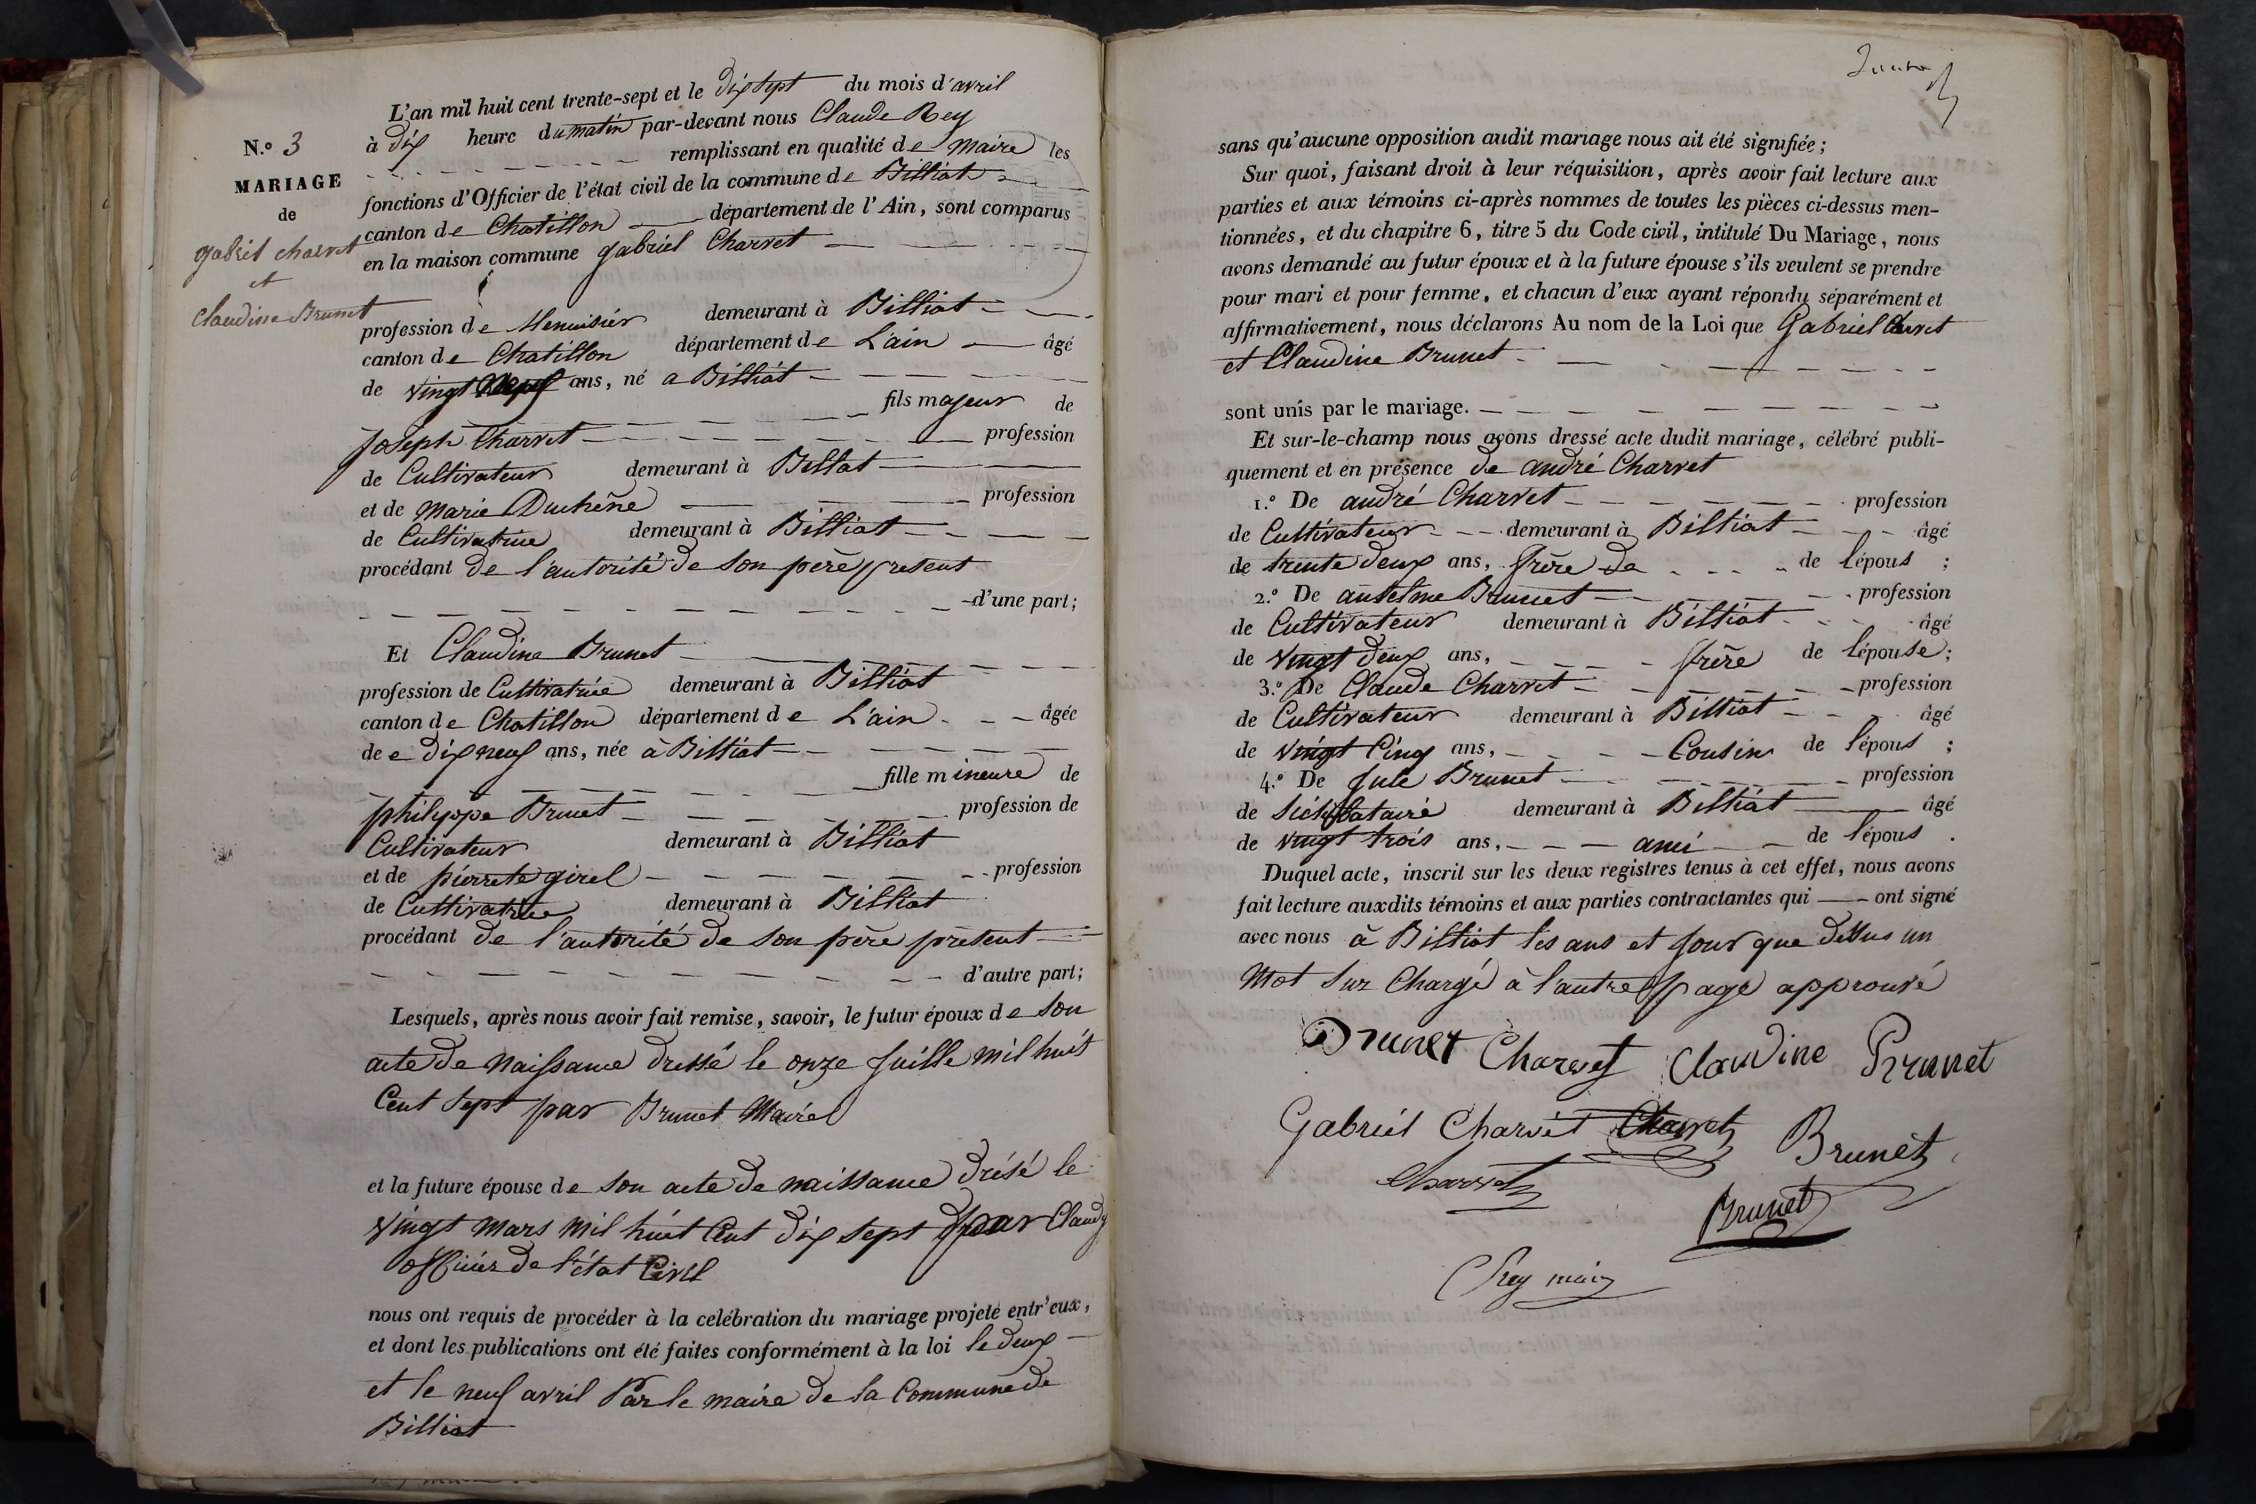 N.o 3
MARIAGE
de
gabriel charvet
et
claudine Brunet
L'an mil huit cent trente-sept et le dix sept du mois d'avril
à dix heure du matin par-devant nous Claude Rey
remplissant en qualité de maire les
fonctions d'Officier de l'état civil de la commune de Billiat
canton de Chatillon département de l'Ain, sont comparus
en la maison commune gabriel Charvet
profession de Menuisier demeurant à Billiat
canton de Chatillon département de L'ain âgé
de vingt neuf ans, né a Billiat
fils majeur de
joseph Charvet profession
de Cultivateur demeurant à Billat
et de marie Duchêne profession
de Cultivatrice demeurant à Billiat
procédant de l'autorité de son père present
d'une part;
Et Claudine Brunet
profession de Cultivatrice demeurant à Billiat
canton de Chatillon département de L'ain âgée
de e dix neuf ans, née à Billiat
fille mineure de
philippe Brunet profession de
Cultivateur demeurant à Billiat
et de pierrete girel profession
de Cultivatrice demeurant à Billiat
procédant de l'autorité de son père present
d'autre part;
Lesquels, après nous avoir fait remise, savoir, le futur époux de son
acte de naissance dressé le onze juille mil huit
Cent sept par Brunet Maire
et la future épouse de son acte de naissance drésé le
vingt mars mil huit Cent dix sept par Claudy
officier de l'état Civil
nous ont requis de procéder à la celébration du mariage projeté entr'eux,
et dont les publications ont été faites conformément à la loi le deux
et le neuf avril Par le maire de la Commune de
Billiat
sans qu'aucune opposition audit mariage nous ait été signifiée;
Sur quoi, faisant droit à leur réquisition, après avoir fait lecture aux
parties et aux témoins ci-après nommes de toutes les pièces ci-dessus men-
tionnées, et du chapitre 6, titre 5 du Code civil, intitulé Du Mariage, nous
avons demandé au futur époux et à la future épouse s'ils veulent se prendre
pour mari et pour femme, et chacun d'eux ayant répondu séparément et
affirmativement, nous déclarons Au nom de la Loi que Gabriel Charvet
et Claudine Brunet
sont unis par le mariage.
Et sur-le-champ nous avons dressé acte dudit mariage, célébré publi-
quement et en présence de andré Charvet
1.o De andré Charvet profession
de Cultivateur demeurant à Billiat âgé
de trente deux ans, frère de de l'épous ;
2.o De anselme Brunet profession
de Cultivateur demeurant à Billiat âgé
de vingt deux ans, frère de l'épouse;
3.o De Claude Charvet profession
de Cultivateur demeurant à Billiat âgé
de vingt Cinq ans, Cousin de l'épous ;
4.o De Jule Brunet profession
de demeurant à Billiat âgé
de vingt trois ans, ami de l'épous .
Duquel acte, inscrit sur les deux registres tenus à cet effet, nous avons
fait lecture auxdits témoins et aux parties contractantes qui ont signé
avec nous à Billiat les ans et jour que dessus un
Mot sur Chargé à l'autre page approuvé
Brunet Charvet Claudine Brunet
Gabriel Charvet Charvet Brunet
Charvet
Brunet
Rey maire